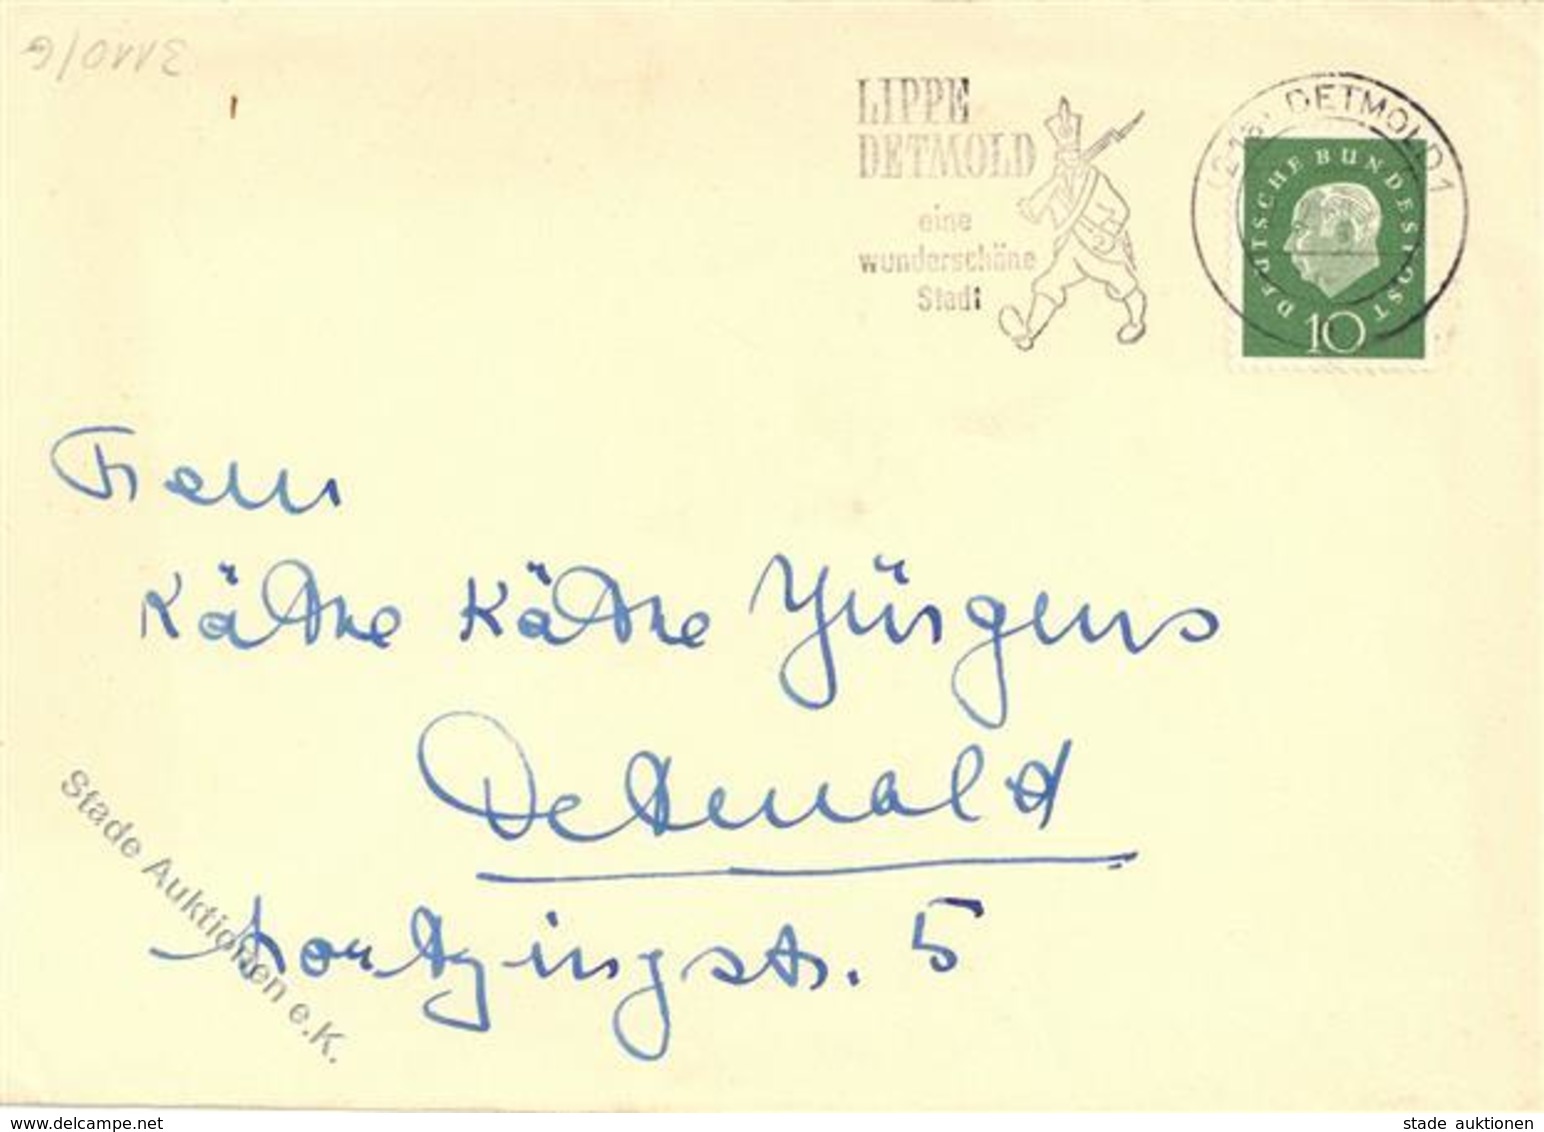 3110/G
LIPPE
DETMOLD
eine
wunderschöne
Stadt
(21a) DETMOLD 1
DEUTSCHE BUNDESPOST
10
Frau
Käthe Käthe Jürgens
Detmold
Lortzingstr. 5
Stade Auktionen e.K.
www.delcampe.net
stade auktionen